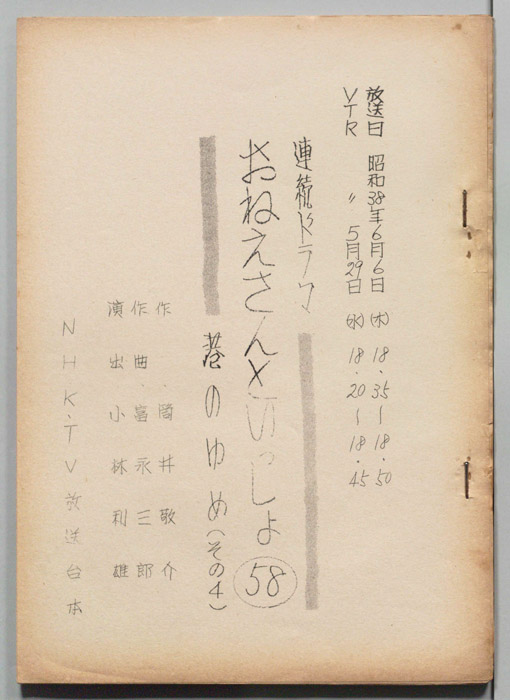 放送日 昭和38年6月6日(木) 18.35〜18.50
VTR 〃 5月29日(水) 18.20〜18.45
連続ドラマ
おねえさんといっしょ 58
港のゆめ(その4)
作・筒井敬介
作曲・富永三郎
演出 小林利雄
NHK・TV放送台本